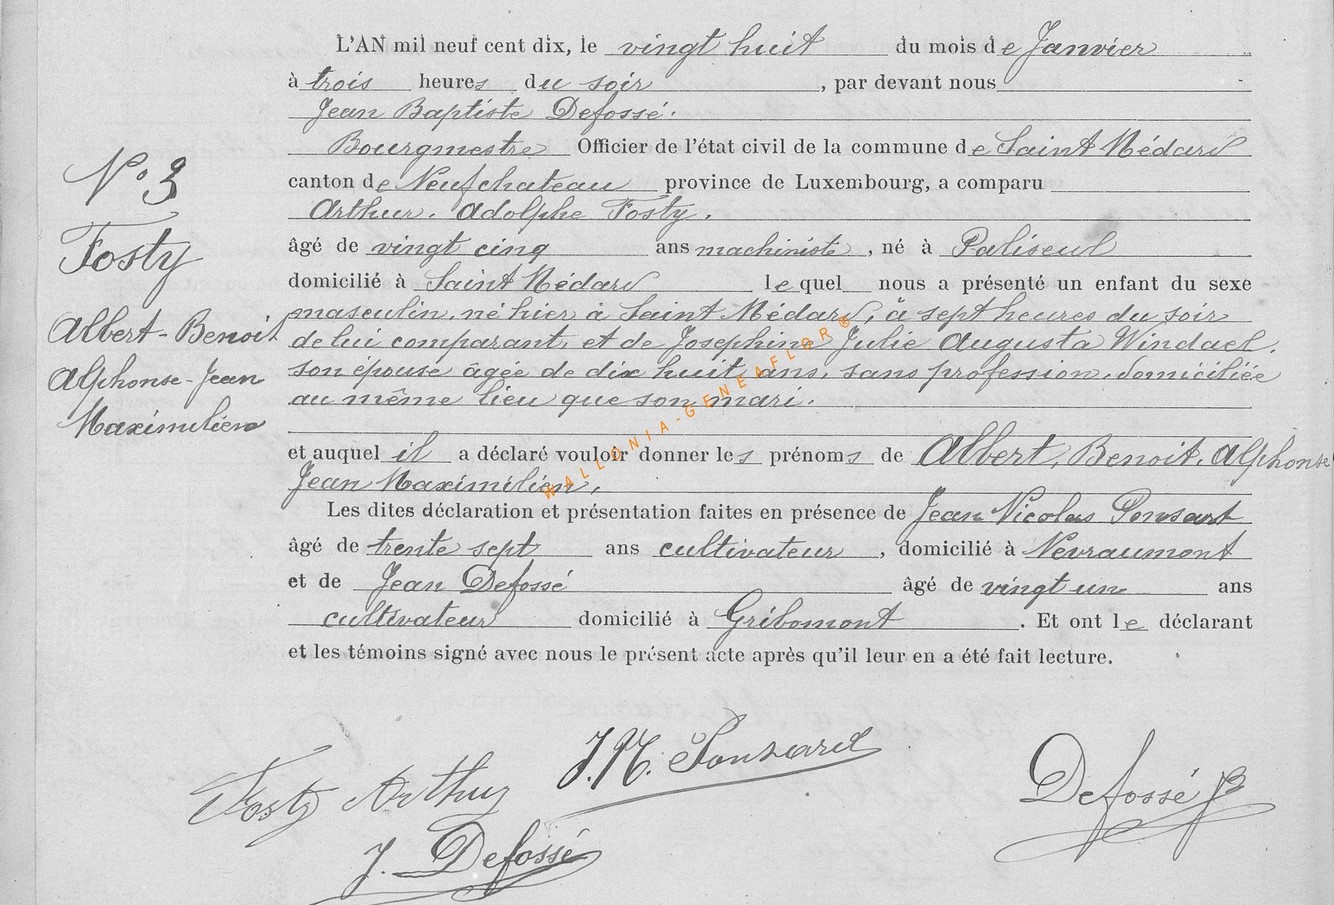 L'AN mil neuf cent dix, le vingt huit du mois de Janvier
à trois heures du soir, par devant nous
Jean Baptiste Defossé.
Bourgmestre Officier de l'état civil de la commune de Saint Médard
canton de Neufchateau province de Luxembourg, a comparu
Arthur. Adolphe Fosty.
âgé de vingt cinq ans machiniste, né à Paliseul
domicilié à Saint Médard lequel nous a présenté un enfant du sexe
masculin, né hier à Saint Médard, à sept heures du soir
de lui comparant, et de Josephine Julie Augusta Windael.
son épouse agée de dix huit ans, sans profession, domiciliée
au même lieu que son mari.
et auquel il a déclaré vouloir donner les prénoms de Albert, Benoit, Alphonse
Jean Maximilien,
Les dites déclaration et présentation faites en présence de Jean Nicolas Ponsart
âgé de trente sept ans cultivateur, domicilié à Nevraumont
et de Jean Defossé âgé de vingt un ans
cultivateur domicilié à Gribomont. Et ont le déclarant
et les témoins signé avec nous le présent acte après qu'il leur en a été fait lecture.
N° 3
Fosty
Albert-Benoit
Alphonse-Jean
Maximilien
WALLONIA-GENEAFLOR®
Fosty Arthur
J.N. Ponsard
Defossé JB
J. Defossé